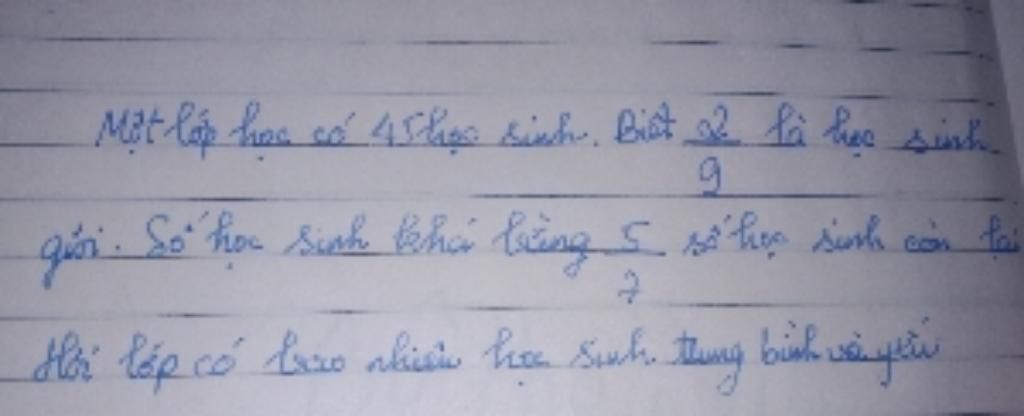 Một lớp học có 45 học sinh. Biết 2/9 là học sinh
giỏi. Số học sinh khá bằng 5/7 số học sinh còn lại
Hỏi lớp có bao nhiêu học sinh trung bình và yếu